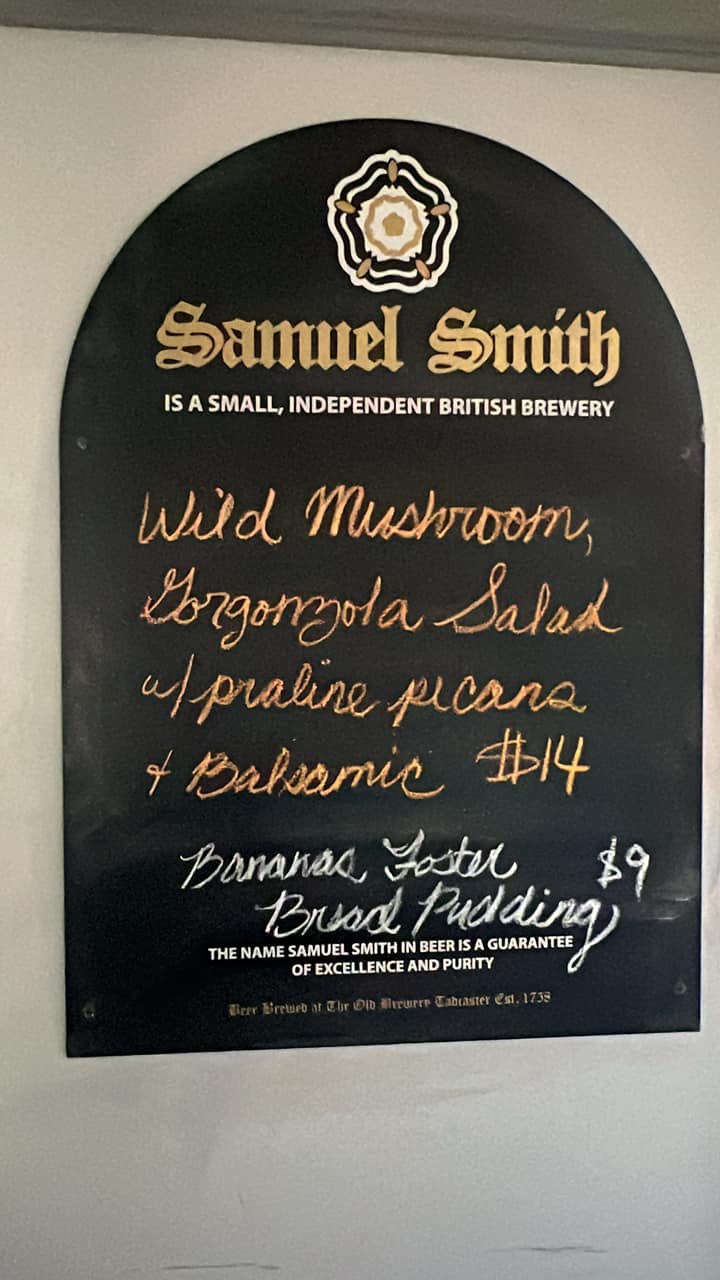 Samuel Smith
IS A SMALL, INDEPENDENT BRITISH BREWERY
Wild Mushroom,
Gorgonzola Salad
w/ praline pecans
+ Balsamic $14
Bananas Foster $9
Bread Pudding
THE NAME SAMUEL SMITH IN BEER IS A GUARANTEE
OF EXCELLENCE AND PURITY
Beer Brewed at The Old Brewery Tadcaster Est. 1758